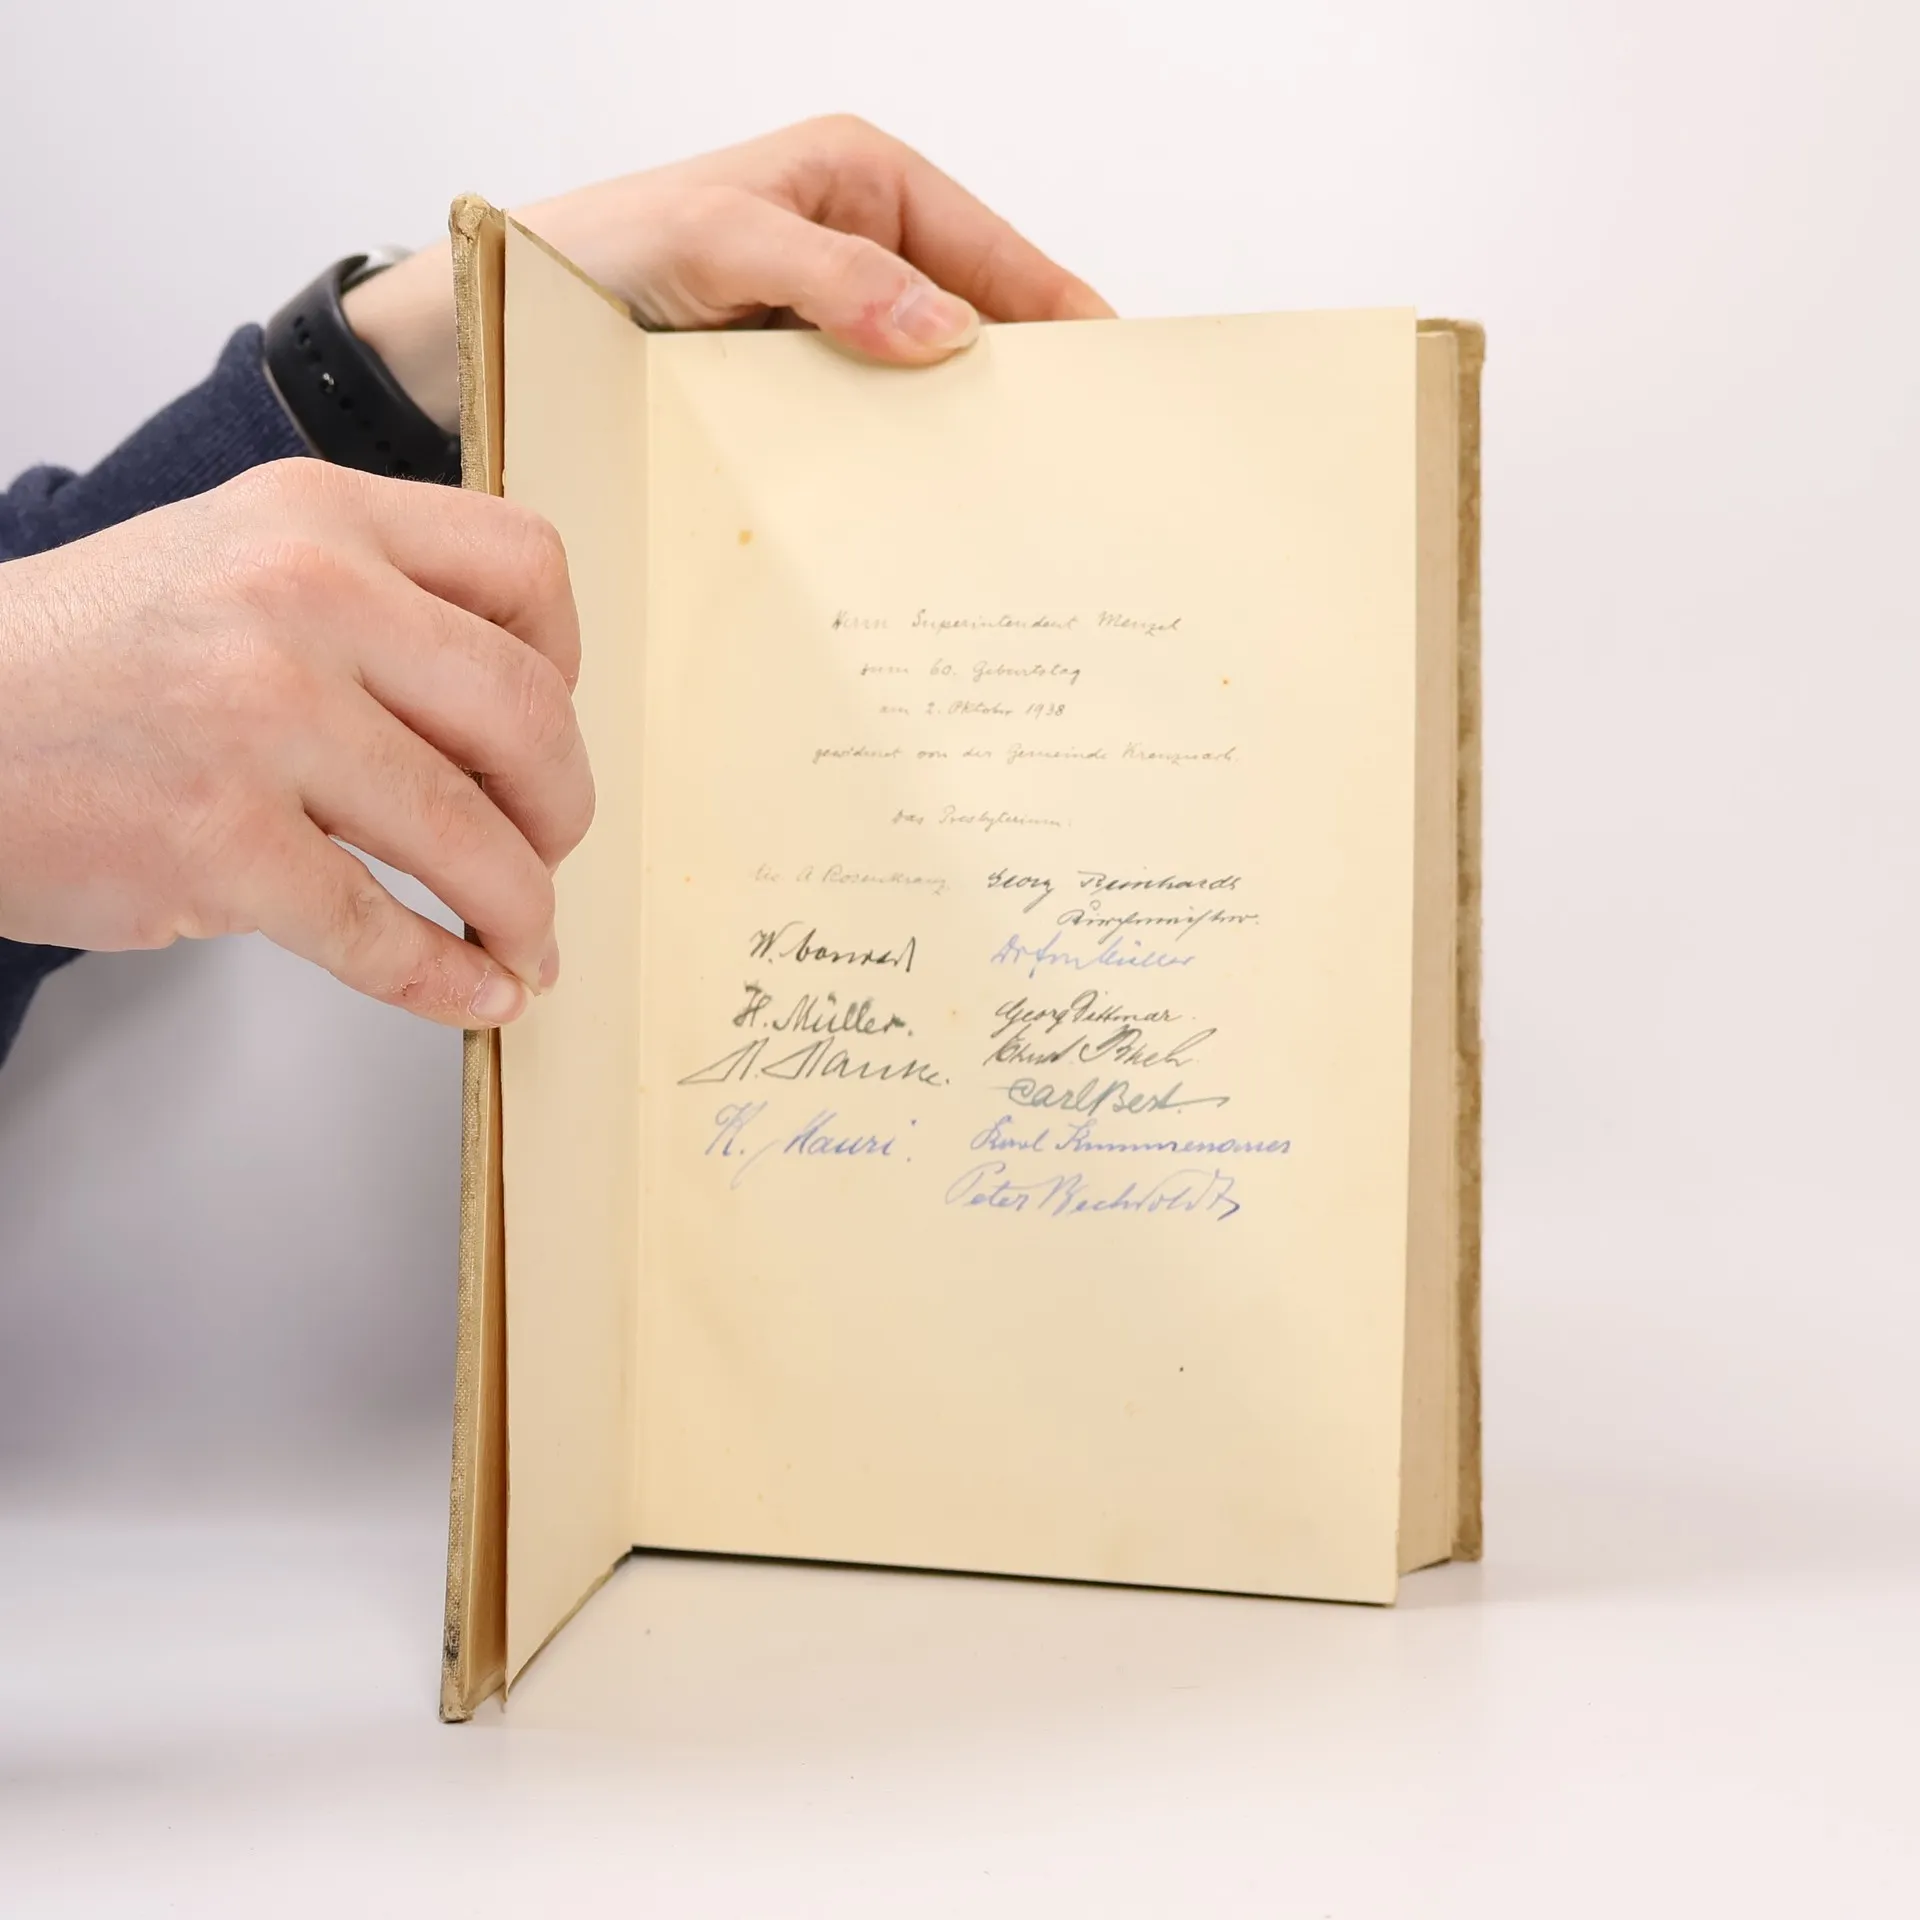 Herrn Superintendent Menzel
zum 60. Geburtstag
am 2. Oktober 1938
gewidmet von der Gemeinde Kreuznach.
Das Presbyterium.
Lic. A Rosenkranz.
Georg Reinhardt
Kirchmeister.
W. Conrad
Müller
H. Müller.
Georg Dittmar.
Carl Best.
K. Mauri.
Karl
Peter Bechtoldt